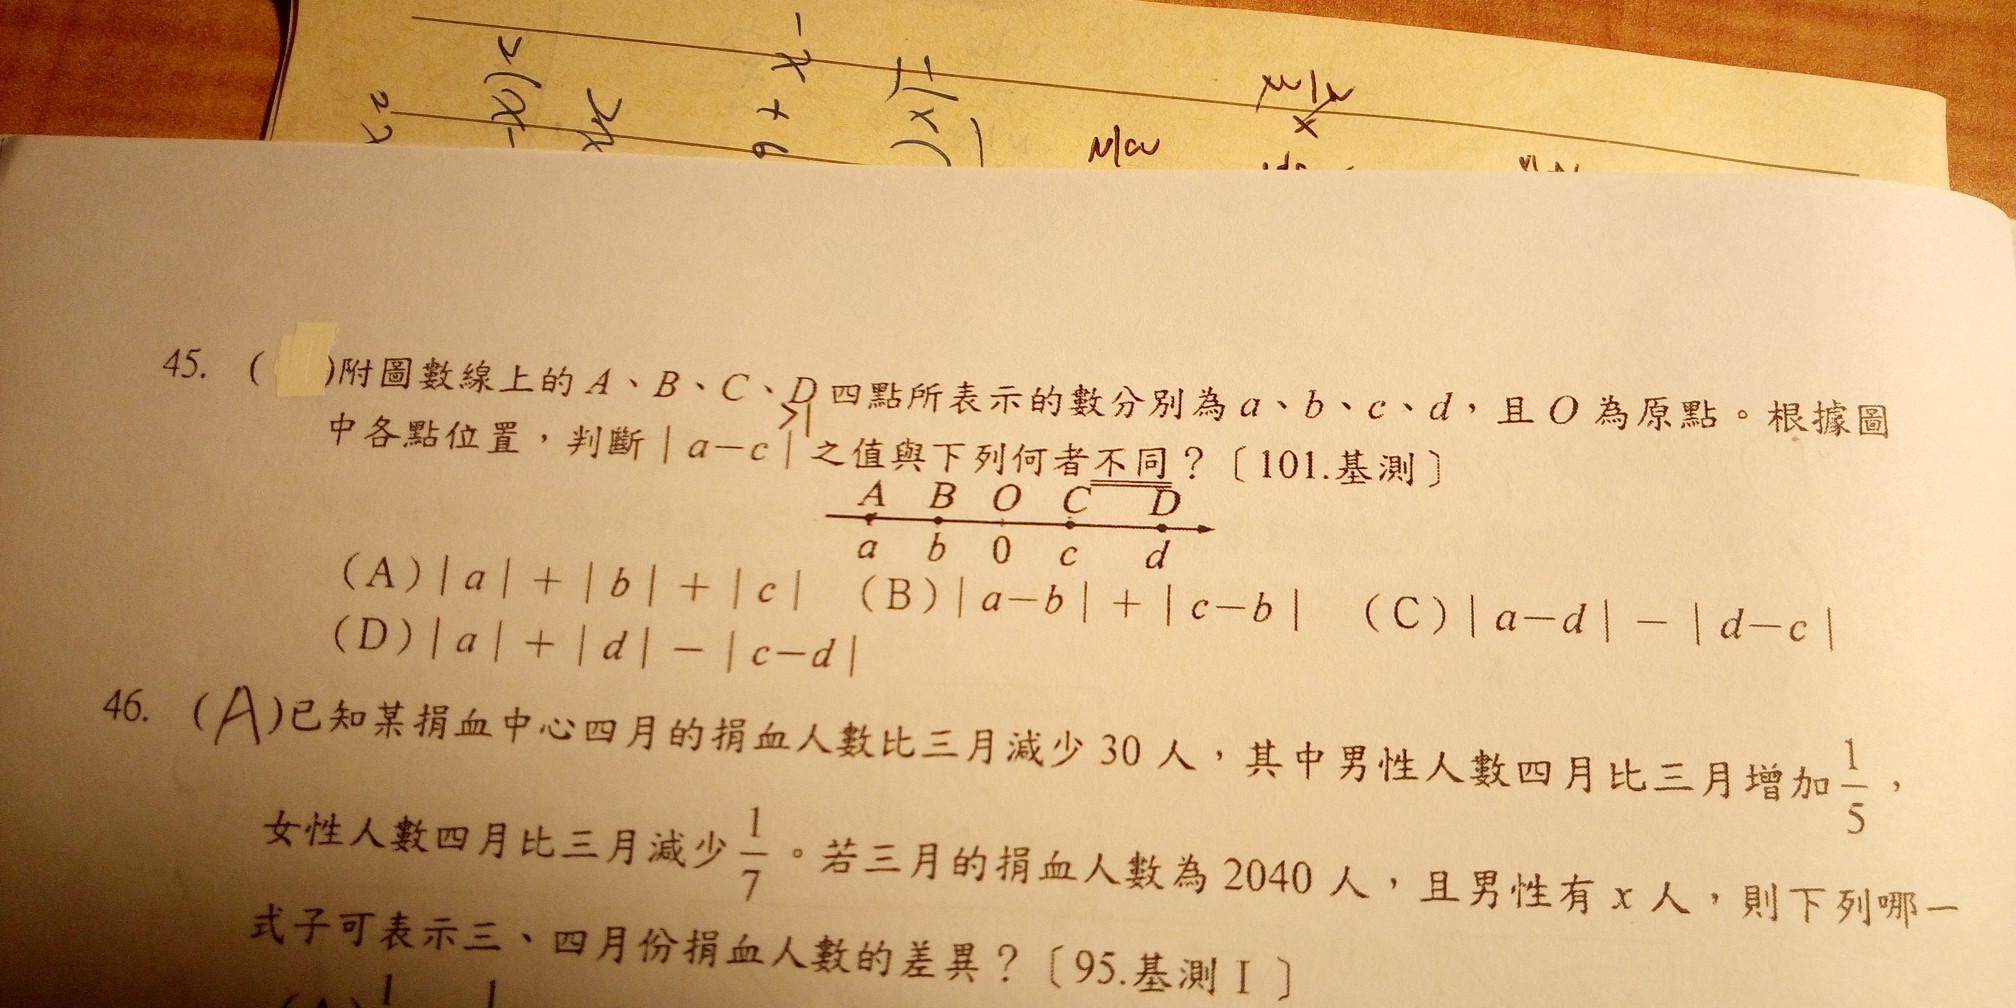 45. ( )附圖數線上的 A、B、C、D 四點所表示的數分別為 a、b、c、d，且 O 為原點。根據圖
中各點位置，判斷 | a－c | 之值與下列何者不同？〔101.基測〕
A B O C D
a b 0 c d
(A) | a | ＋ | b | ＋ | c | (B) | a－b | ＋ | c－b | (C) | a－d | － | d－c |
(D) | a | ＋ | d | － | c－d |
46. (A)已知某捐血中心四月的捐血人數比三月減少 30 人，其中男性人數四月比三月增加 1/5，
女性人數四月比三月減少 1/7。若三月的捐血人數為 2040 人，且男性有 x 人，則下列哪一
式子可表示三、四月份捐血人數的差異？〔95.基測 I 〕